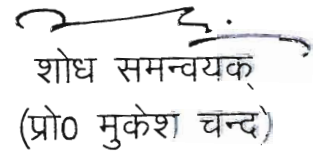 शोध समन्वयक्
(प्रो0 मुकेश चन्द)